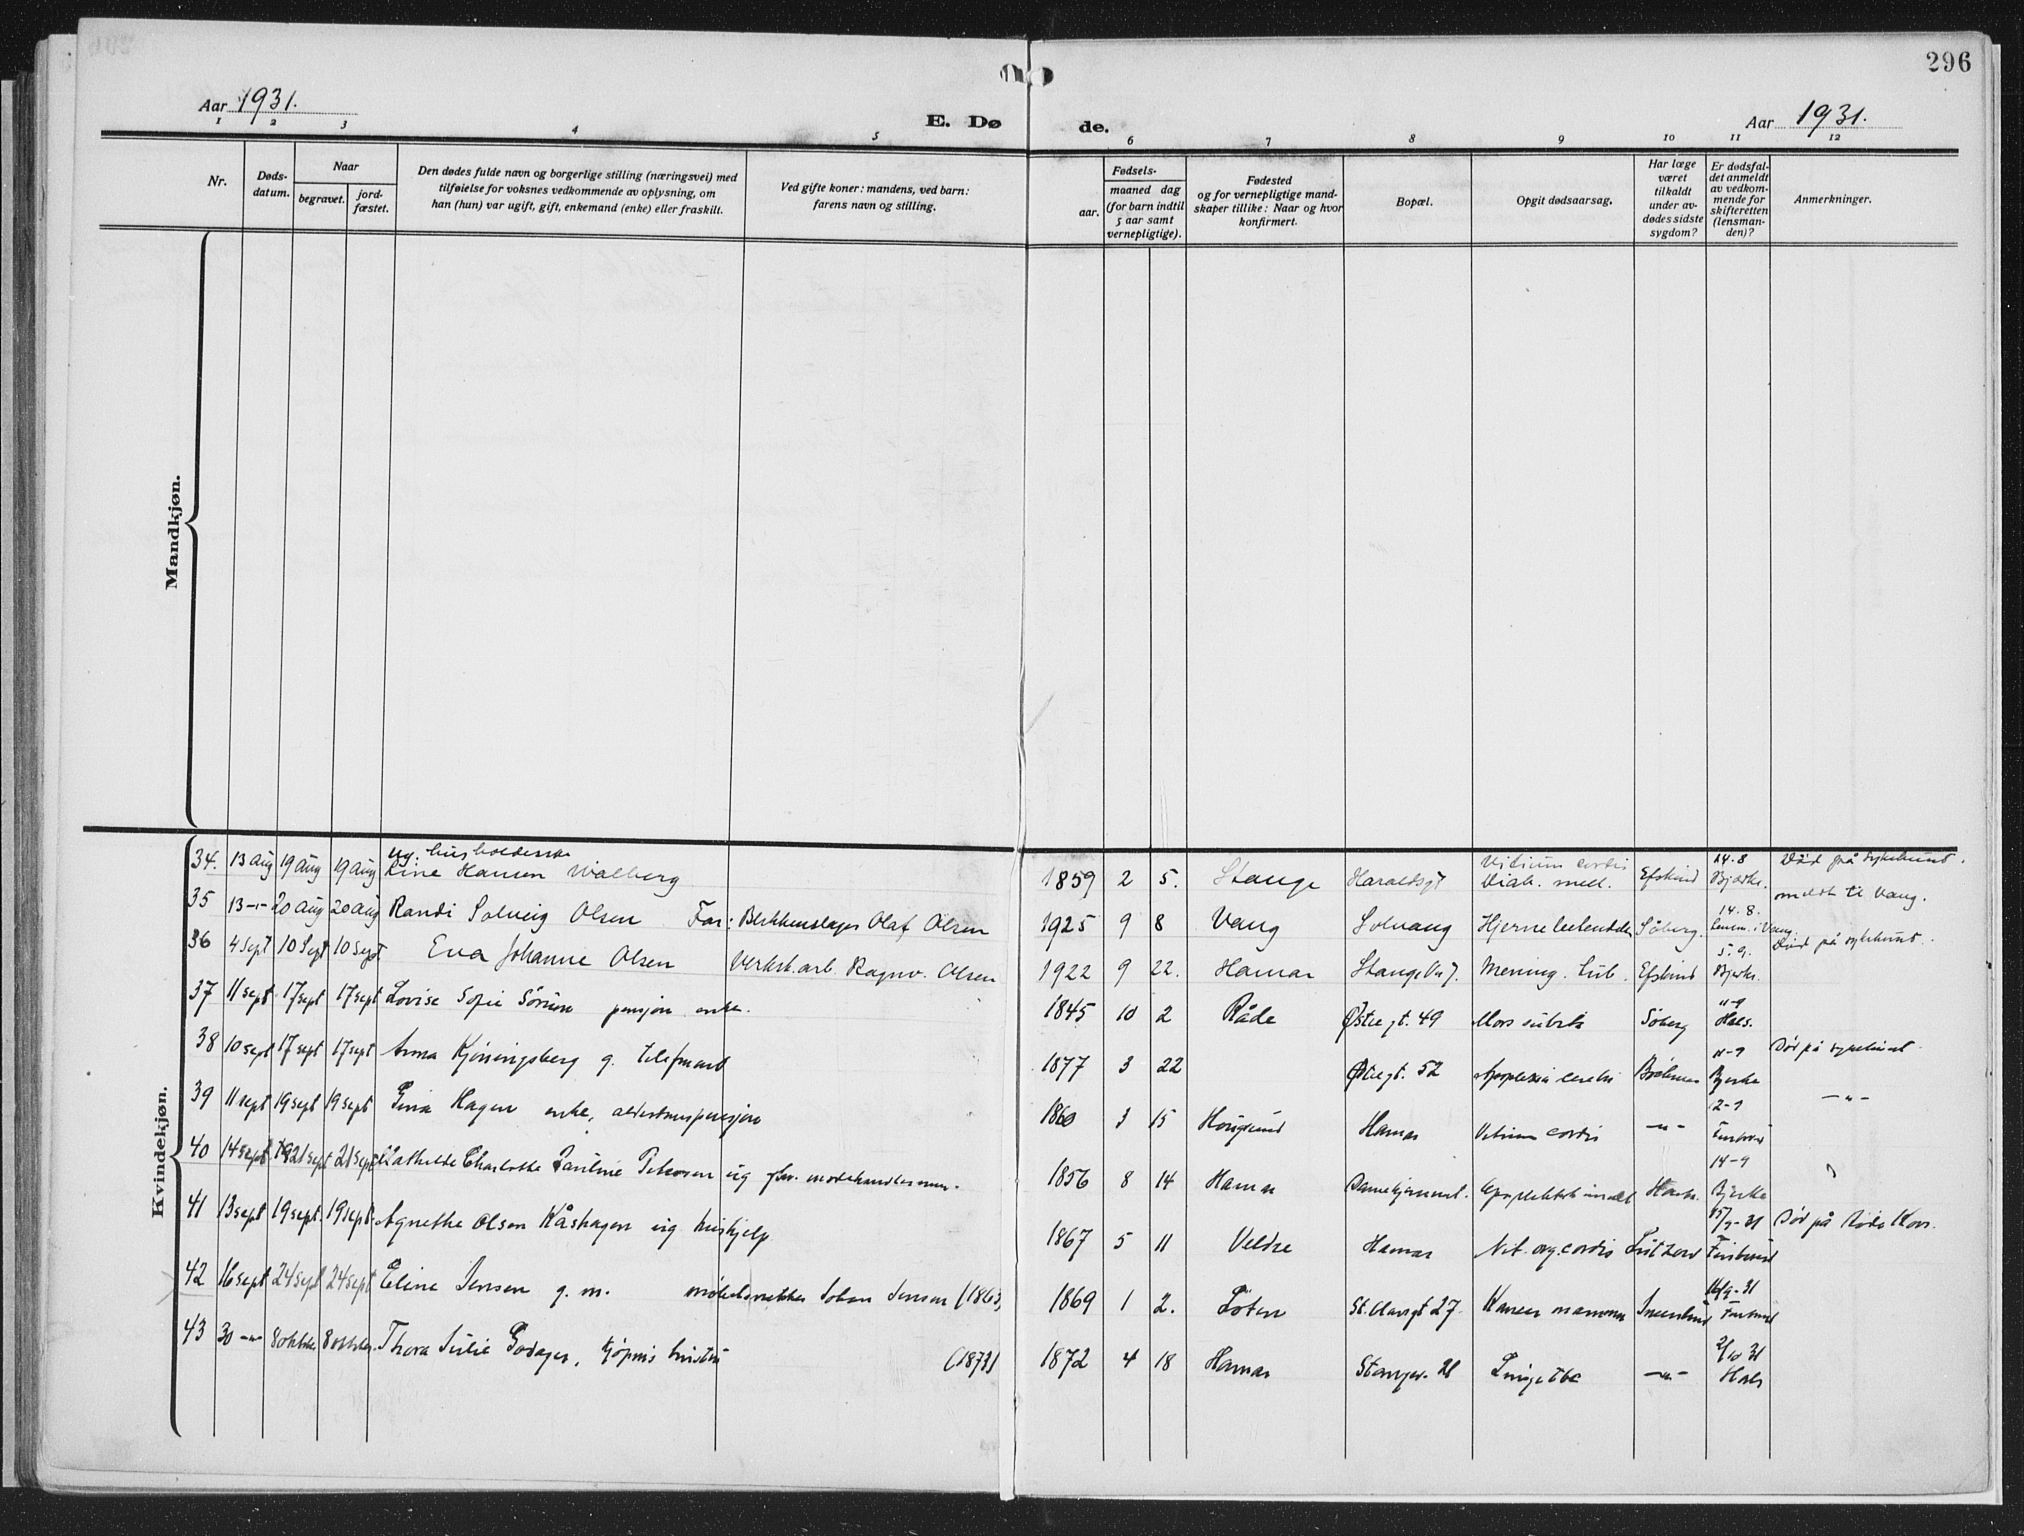 296
Aar 1931.
E. Døde.
Aar 1931.
1 2 3 4 5 6 7 8 9 10 11 12
Nr.
Døds-
datum.
Naar
begravet.
jord-
fæstet.
Den dødes fulde navn og borgerlige stilling (næringsvei) med
tilføielse for voksnes vedkommende av oplysning, om
han (hun) var ugift, gift, enkemand (enke) eller fraskilt.
Ved gifte koner: mandens, ved barn:
farens navn og stilling.
Fødsels-
aar.
maaned dag
(for barn indtil
5 aar samt
vernepligtige).
Fødested
og for vernepligtige mand-
skaper tillike: Naar og hvor
konfirmert.
Bopæl.
Opgit dødsaarsag.
Har læge
været
tilkaldt
under av-
dødes sidste
sygdom?
Er dødsfal-
det anmeldt
av vedkom-
mende for
skifteretten
(lensman-
den)?
Anmerkninger.
Mandkjøn.
Kvindekjøn.
ug. husholderske Vitium cordis 14.8 Død på sykehuset.
34. 13 aug 19 aug 19 aug Line Hansen Walberg 1859 2 5. Stange Haraldsgt Diab. mell. Efskind Bjerke. meldt til Vang.
35 13 -"- 20 aug 20 aug Randi Solveig Olsen Far: Blikkenslager Olaf Olsen 1925 9 8 Vang Solvang Søberg. 14.8. Lensm. i Vang.
36 4 sept 10 sept 10 sept Eva Johanne Olsen Verkst.arb. Ragnv. Olsen 1922 9 22. Hamar Stangev. 7. Mening. tub. Efskind 5.9. Bjerke. Død på sykehuset.
37 11 sept 17 sept 17 sept Lovise Sofie pensjon. enke. 1845 10 2 Råde Østregt. 49 Mors subita Søberg 11-9 Hals.
38 10 sept 17 sept 17 sept Anna Kjøningsberg g. 1877 3 22 Østregt. 52 Apoplexia cerebri 11-9 Bjerke Død på sykehuset
39 11 sept 19 sept 19 sept Hagen enke, 1860 3 15 Hamar Vitium cordis -"- 12-9 -"-
40 14 sept 21 sept 21 sept Charlotte Pauline Petersen ug fhv. modehandlerinne. 1856 8 14 Hamar 14-9 Bjerke
41 13 sept 19 sept. 19 sept. Agnethe Olsen Kåshagen ug. hushjelp 1867 5 11 Veldre Hamar Vit. org. cordis 15/9-31 Død på Røde Kors.
42 16 sept 24 sept 24 sept Eline Jensen g. m. møbelsnekker Johan Jensen (1863) 1869 1 2. Løten St. Olavsgt 27. 16/9-31
43 30 -"- 8 oktbr. 8 oktbr. Thora Julie Godager, kjøpm's hustru (1873) 1872 4 18 Hamar Stangev. 28 Lungetbc -"- 2/10 31 Hals